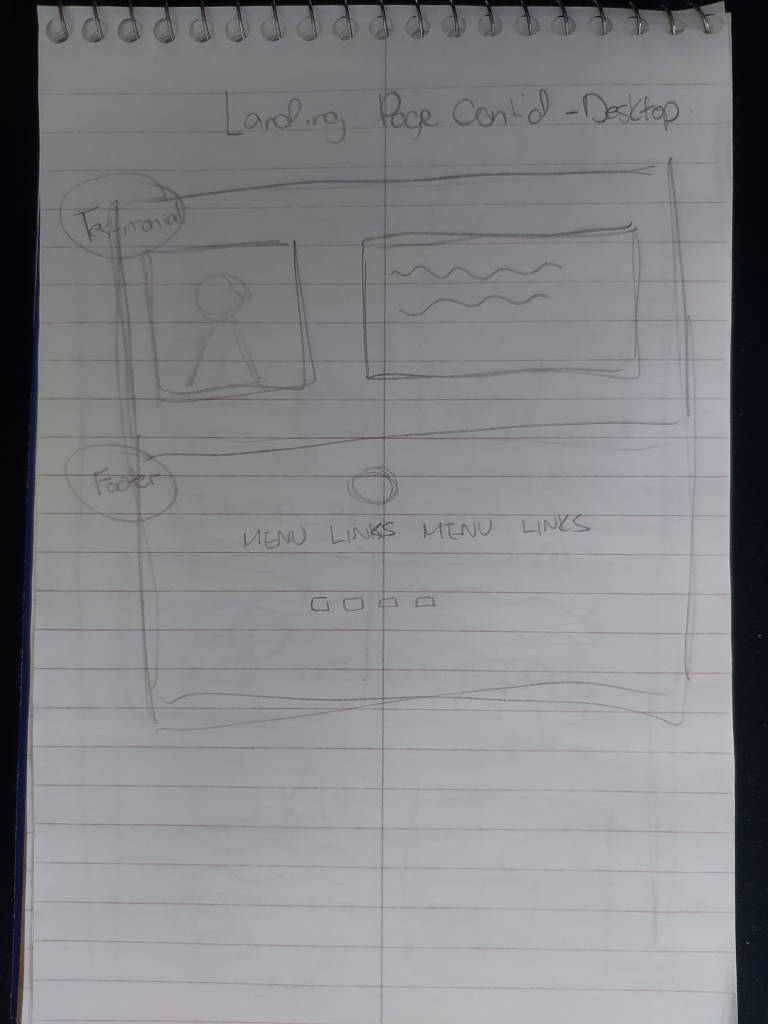 Landing Page Cont'd - Desktop
Testimonial
Footer
MENU LINKS MENU LINKS